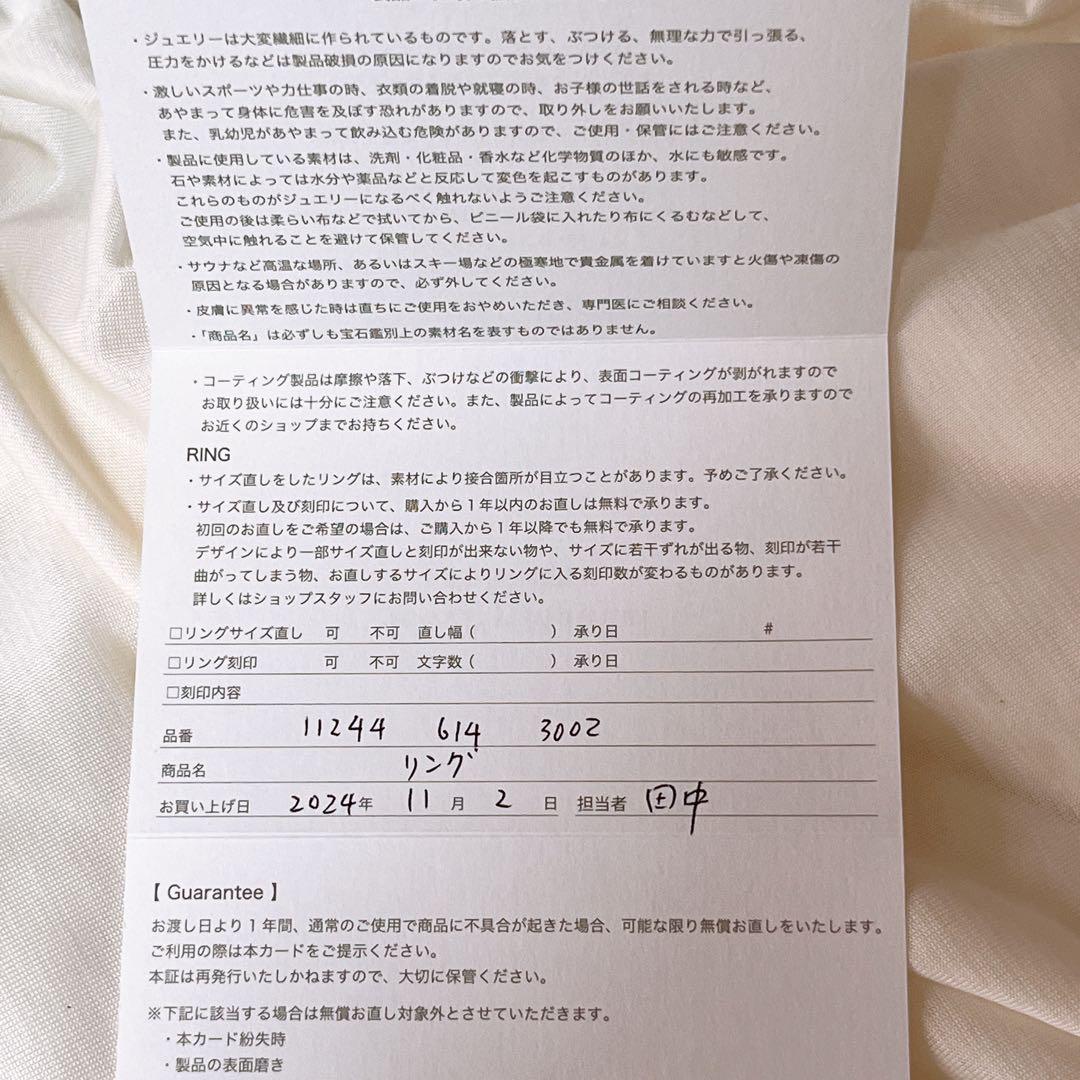 ・ジュエリーは大変繊細に作られているものです。落とす、ぶつける、無理な力で引っ張る、
圧力をかけるなどは製品破損の原因になりますのでお気をつけください。
・激しいスポーツや力仕事の時、衣類の着脱や就寝の時、お子様の世話をされる時など、
あやまって身体に危害を及ぼす恐れがありますので、取り外しをお願いいたします。
また、乳幼児があやまって飲み込む危険がありますので、ご使用・保管にはご注意ください。
・製品に使用している素材は、洗剤・化粧品・香水など化学物質のほか、水にも敏感です。
石や素材によっては水分や薬品などと反応して変色を起こすものがあります。
これらのものがジュエリーになるべく触れないようご注意ください。
ご使用の後は柔らい布などで拭いてから、ビニール袋に入れたり布にくるむなどして、
空気中に触れることを避けて保管してください。
・サウナなど高温な場所、あるいはスキー場などの極寒地で貴金属を着けていますと火傷や凍傷の
原因となる場合がありますので、必ず外してください。
・皮膚に異常を感じた時は直ちにご使用をおやめいただき、専門医にご相談ください。
・「商品名」は必ずしも宝石鑑別上の素材名を表すものではありません。
・コーティング製品は摩擦や落下、ぶつけなどの衝撃により、表面コーティングが剥がれますので
お取り扱いには十分にご注意ください。また、製品によってコーティングの再加工を承りますので
お近くのショップまでお持ちください。
RING
・サイズ直しをしたリングは、素材により接合箇所が目立つことがあります。予めご了承ください。
・サイズ直し及び刻印について、購入から1年以内のお直しは無料で承ります。
初回のお直しをご希望の場合は、ご購入から1年以降でも無料で承ります。
デザインにより一部サイズ直しと刻印が出来ない物や、サイズに若干ずれが出る物、刻印が若干
曲がってしまう物、お直しするサイズによりリングに入る刻印数が変わるものがあります。
詳しくはショップスタッフにお問い合わせください。
□リングサイズ直し 可 不可 直し幅( ) 承り日 #
□リング刻印 可 不可 文字数( ) 承り日
□刻印内容
品番 11244 614 3002
商品名 リング
お買い上げ日 2024年 11月 2日 担当者 田中
【 Guarantee 】
お渡し日より1年間、通常のご使用で商品に不具合が起きた場合、可能な限り無償お直しをいたします。
ご利用の際は本カードをご提示ください。
本証は再発行いたしかねますので、大切に保管ください。
※下記に該当する場合は無償お直し対象外とさせていただきます。
・本カード紛失時
・製品の表面磨き